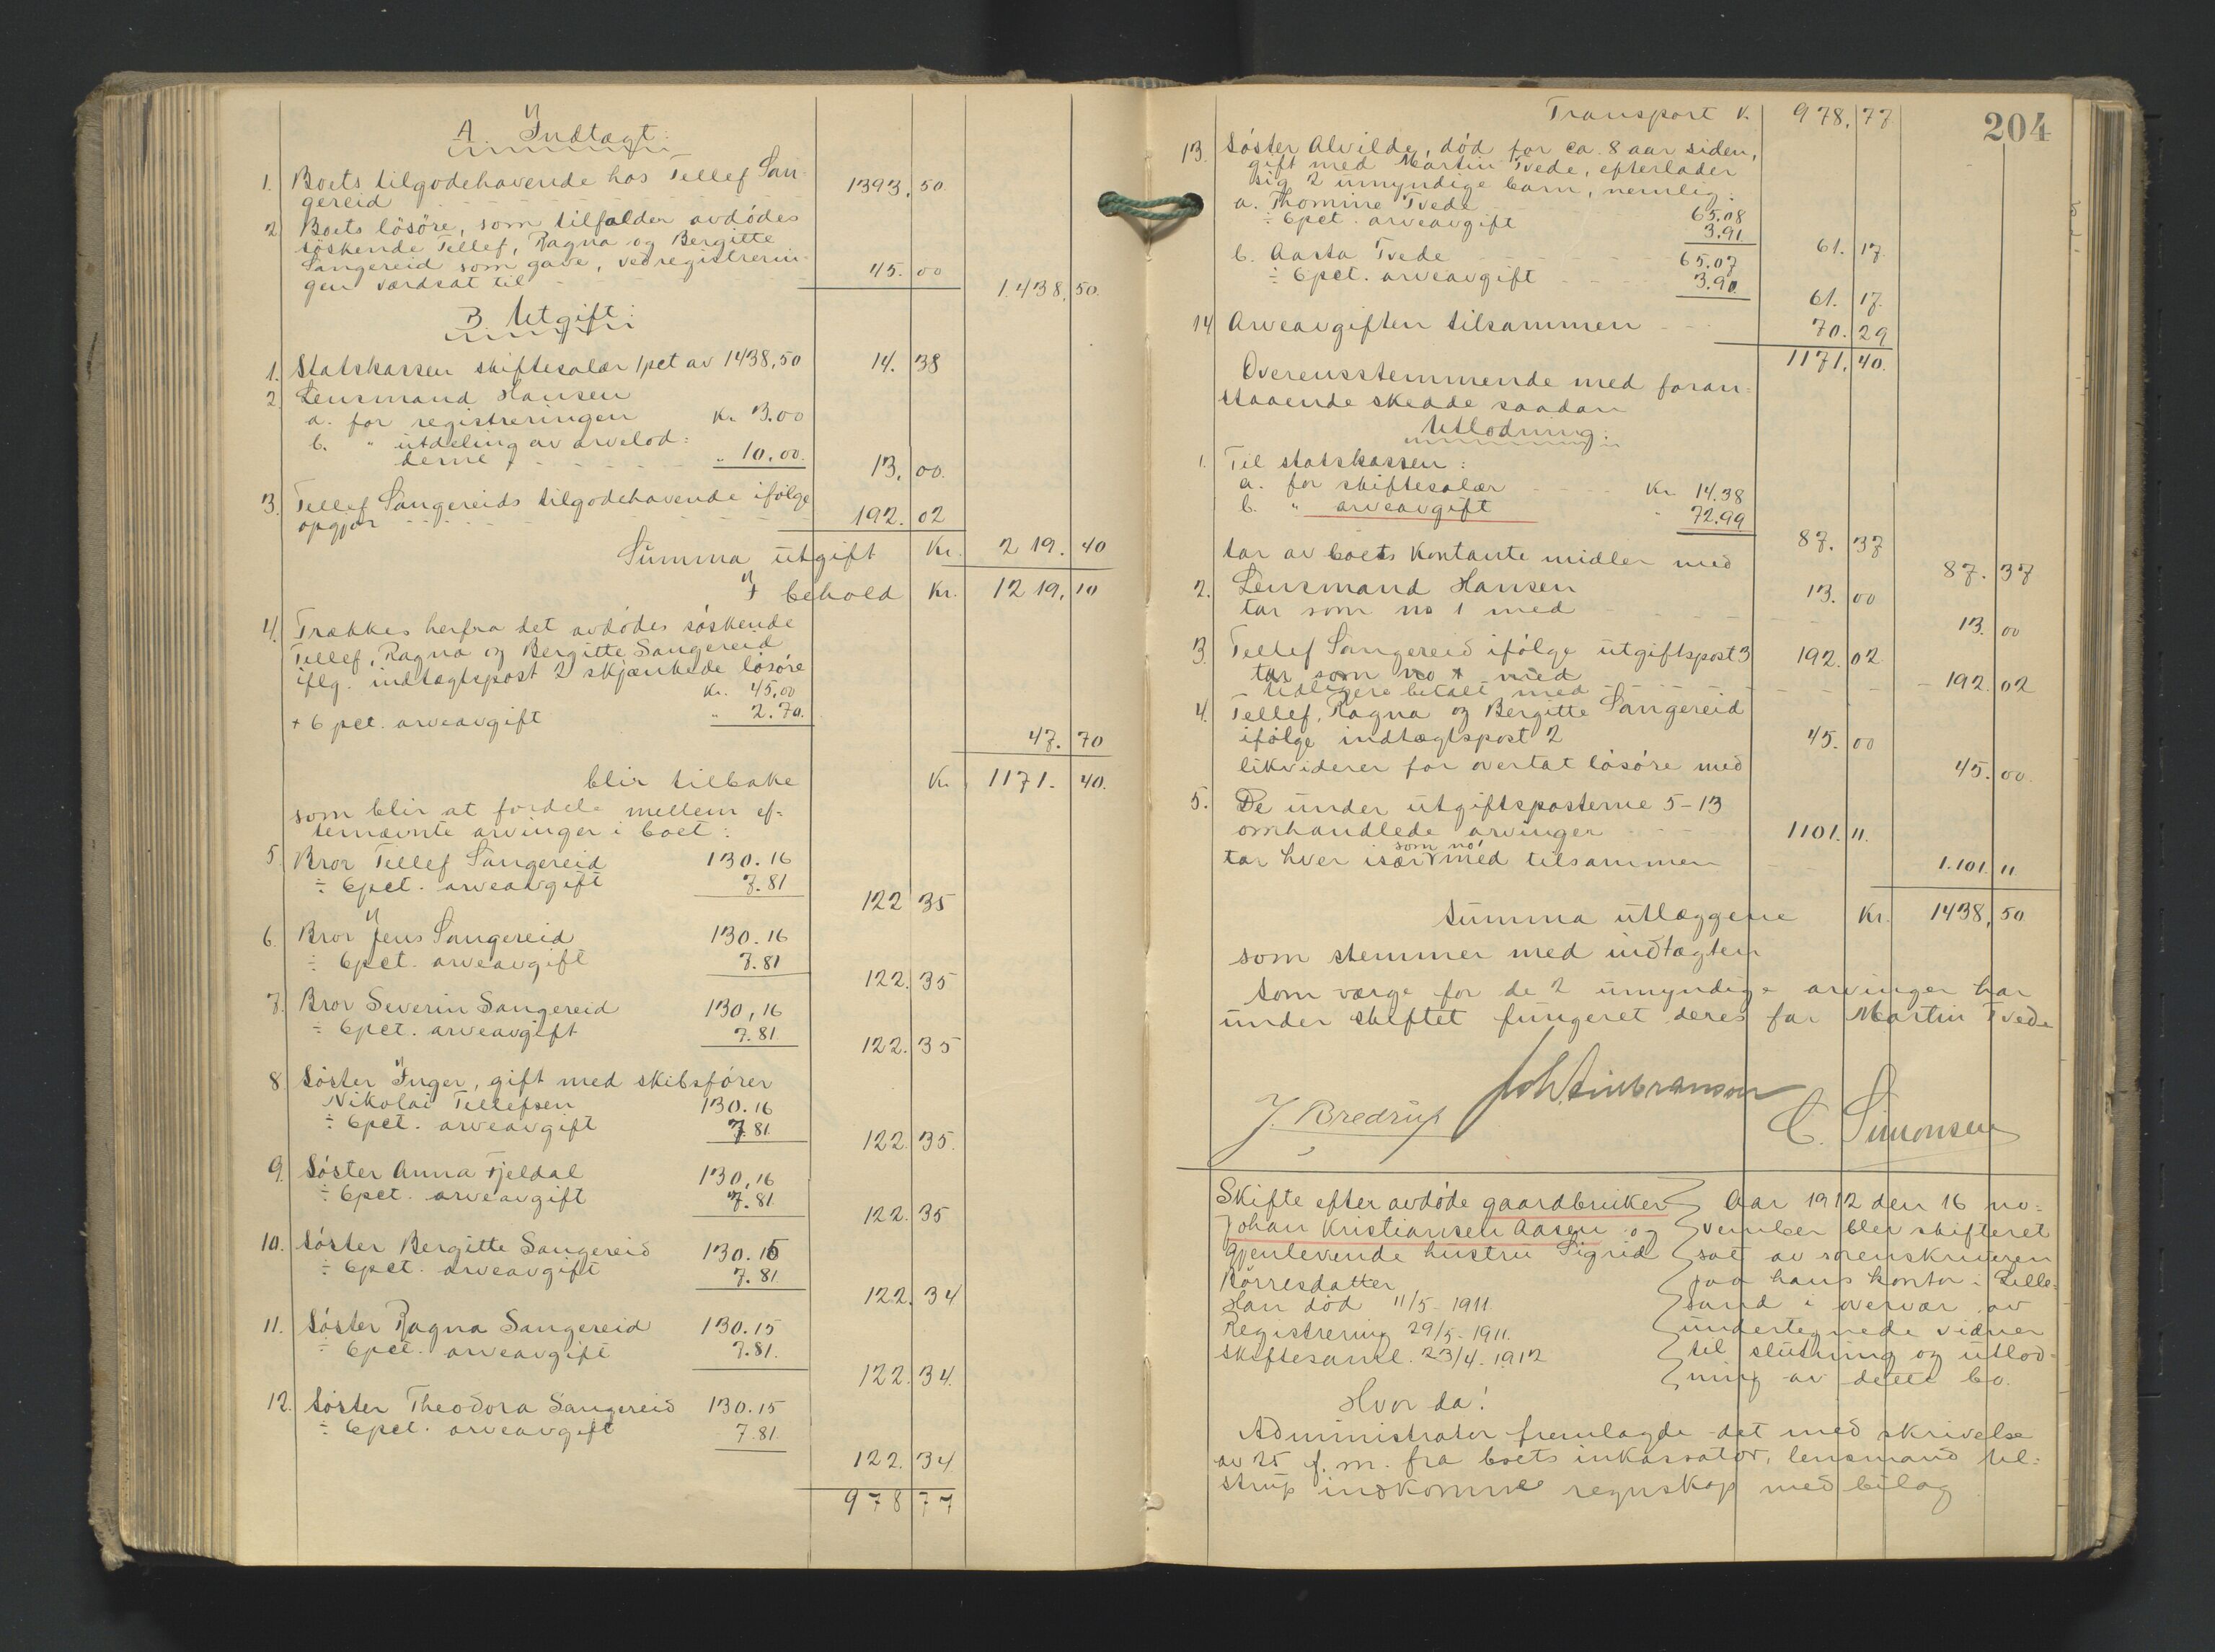 A. Indtægt:
1. Boets tilgodehavende hos Tellef San-
gereid 1393.50
2. Boets lösöre, som tilfalder avdödes
söskende Tellef, Ragna og Bergitte
Sangereid som gave, ved registrerin-
gen værdsat til 45.00 1.438.50.
B. Utgift:
1. Statskassen skiftesalær 1 pct av 1438,50 14.38
2. Lensmand Hansen
a. for registreringen Kr. 3.00
b. " utdeling av arvelod:
derne " 10.00. 13.00.
3. Tellef Sangereids tilgodehavende ifölge
opgjör 192.02
Summa utgift Kr. 219.40
I behold Kr. 1219.10
4. Trækkes herfra det avdödes söskende
Tellef, Ragna og Bergitte Sangereid
iflg. indtægtspost 2 skjænkede lösöre
Kr. 45,00
+ 6 pct. arveavgift " 2.70.
47.70
blir tilbake Kr. 1171.40.
som blir at fordele mellem ef-
ternævnte arvinger i boet:
5. Bror Tellef Sangereid 130.16
÷ 6pct. arveavgift 7.81
122 35
6. Bror Jens Sangereid 130.16
÷ 6pct. arveavgift 7.81
122.35
7. Bror Severin Sangereid 130,16
÷ 6pct. arveavgift 7.81
122.35
8. Söster Inger, gift med skibsförer
Nikolai Tellefsen 130.16
÷ 6pct. arveavgift 7.81
122.35.
9. Söster Anna Fjeldal 130,16
÷ 6pct. arveavgift 7.81
122.35
10. Söster Bergitte Sangereid 130.15
÷ 6pct. arveavgift 7.81
122.34
11. Söster Ragna Sangereid 130.15
÷ 6pct. arveavgift 7.81.
122.34.
12. Söster Theodora Sangereid 130.15
÷ 6pct. arveavgift 7.81
122.34
978 77
204
Transport K. 978.77
13. Söster Alvilde, död for ca. 8 aar siden,
gift med Martin Tvede, efterlader
sig 2 umyndige barn, nemlig:
a. Thomine Tvede 65.08
÷ 6pct. arveavgift 3.91.
61.17
b. Aasta Tvede 65.07
÷ 6pct. arveavgift 3.90.
61.17.
14 Arveavgiften tilsammen 70.29
1171.40.
Overensstemmende med foran-
staaende skedde saadan
Utlodning:
1. Til statskassen:
a. for skiftesalær Kr. 14.38
b. " arveavgift " 72.99
87.37
tar av boets kontante midler med 87.37
2. Lensmand Hansen 13.00
tar som no 1 med 13.00
3. Tellef Sangereid ifölge utgiftspost 3 192.02
tar som no 1 med
tidligere betalt med 192.02
4. Tellef, Ragna og Bergitte Sangereid
ifölge indtægtspost 2 45.00
likviderer for overtat lösöre med 45.00.
5. De under utgiftsposterne 5-13
omhandlede arvinger 1101.11.
som no 1
tar hver især med tilsammen 1.101.11
Summa utlæggene Kr. 1438,50
som stemmer med indtægten
Som værge for de 2 umyndige arvinger har
under skiftet fungeret deres far Martin Tvede
J. Bredrup
C. Simonsen
Skifte efter avdöde gaardbruker
Johan Kristiansen Aasen og
gjenlevende hustru Sigrid
Börresdatter
Han död 11/5-1911
Registrering 29/5-1911.
Skiftesaml. 23/4-1912
Aar 1912 den 16 no-
vember blev skifteret
sat av sorenskriveren
paa hans kontor i Lille-
sand i overvær av
undertegnede vidner
til slutning og utlod-
ning av dette bo.
Hvor da!
Administrator fremlagde det med skrivelse
av 25 f.m. fra boets inkassator, lensmand Uel-
strup indkomne regnskap med bilag